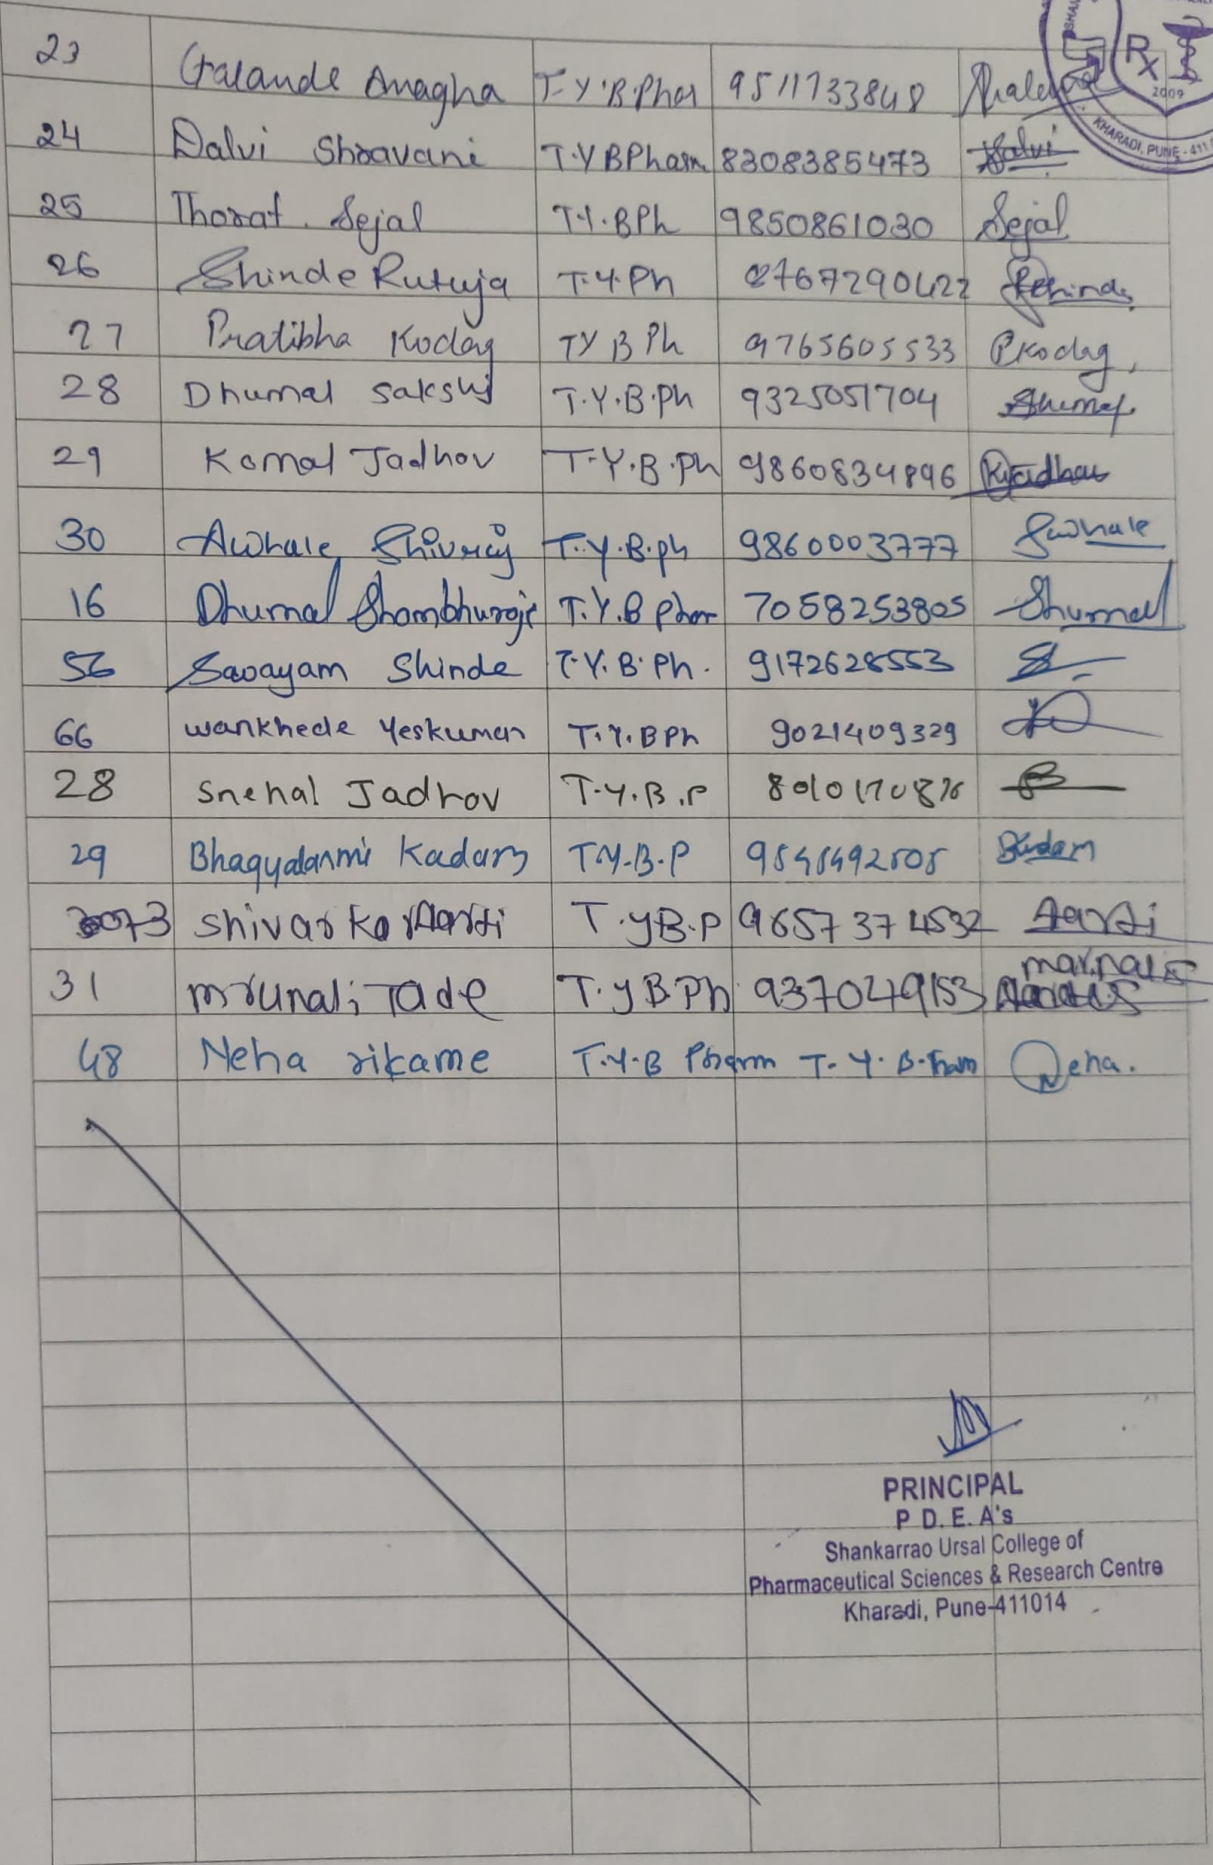 23 Galande Anagha T.Y.B.Phar 9511733848
24 Dalvi Shravani T.Y BPharm 8308385473 Dalvi
25 Thorat Sejal T.Y.BPh 9850861030 Sejal
26 Shinde Rutuja T.Y.Ph 8767290422 Rshinde
27 Pratibha Kodag TY B Ph 9765605533 Pkodag
28 Dhumal Sakshi T.Y.B.Ph 9325051704 Dhumal
29 Komal Jadhav T.Y.B.Ph 9860834896 Kjadhav
30 Awhale Shivraj T.Y.B.ph 9860003777 Sawhale
16 Dhumal Shambhuraje T.Y.B phar 7058253805 Dhumal
56 Swayam Shinde T.Y.B.Ph. 9172628553
66 Wankhede Yeskumar T.Y.BPh 9021409329
28 Snehal Jadhav T.Y.B.P
29 Kadam T.Y-B-P Kadam
Shivarkar Aarti T.YB.P 9657374532 Aarti
31 mrunali Tade T.YB.Ph 9370249153
48 Neha rikame T.Y-B Pharm T.Y.B.Pharm Neha.
PRINCIPAL
P D. E. A's
Shankarrao Ursal College of
Pharmaceutical Sciences & Research Centre
Kharadi, Pune-411014
Rx
2009
KHARADI, PUNE - 411